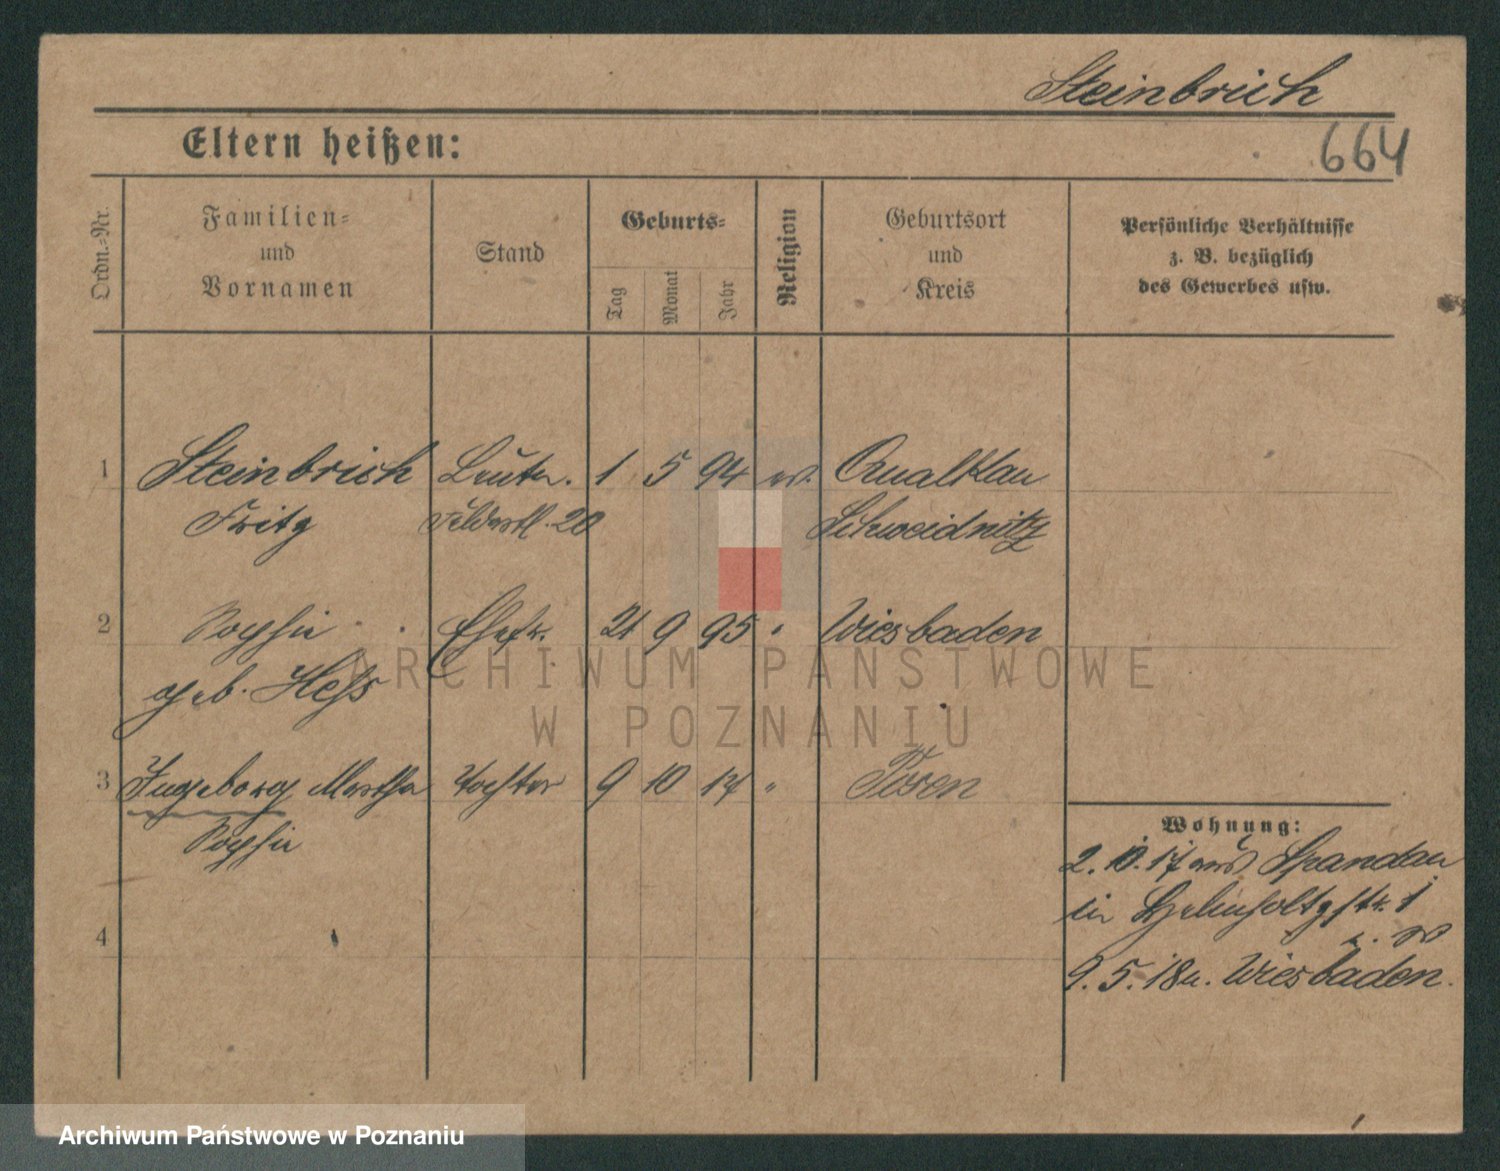 Steinbrich
664
Eltern heißen:
Ordn.-Nr.
Familien- und Vornamen
Stand
Geburts-
Tag
Monat
Jahr
Religion
Geburtsort und Kreis
Persönliche Verhältnisse
z. B. bezüglich
des Gewerbes usw.
1 Steinbrich Leutn. 1 5 94 ev. Qualkau
Fritz 20 Schweidnitz
2 Sophie Ehefr. 21 9 95 " Wiesbaden
geb. Hess
3 Ingeborg Martha Tochter 9 10 17 " Posen
Sophie
4
Wohnung:
2.10.17 aus Spandau
in Helmholtzstr. 1
9.5.18 n. Wiesbaden.
ARCHIWUM PAŃSTWOWE
W POZNANIU
Archiwum Państwowe w Poznaniu